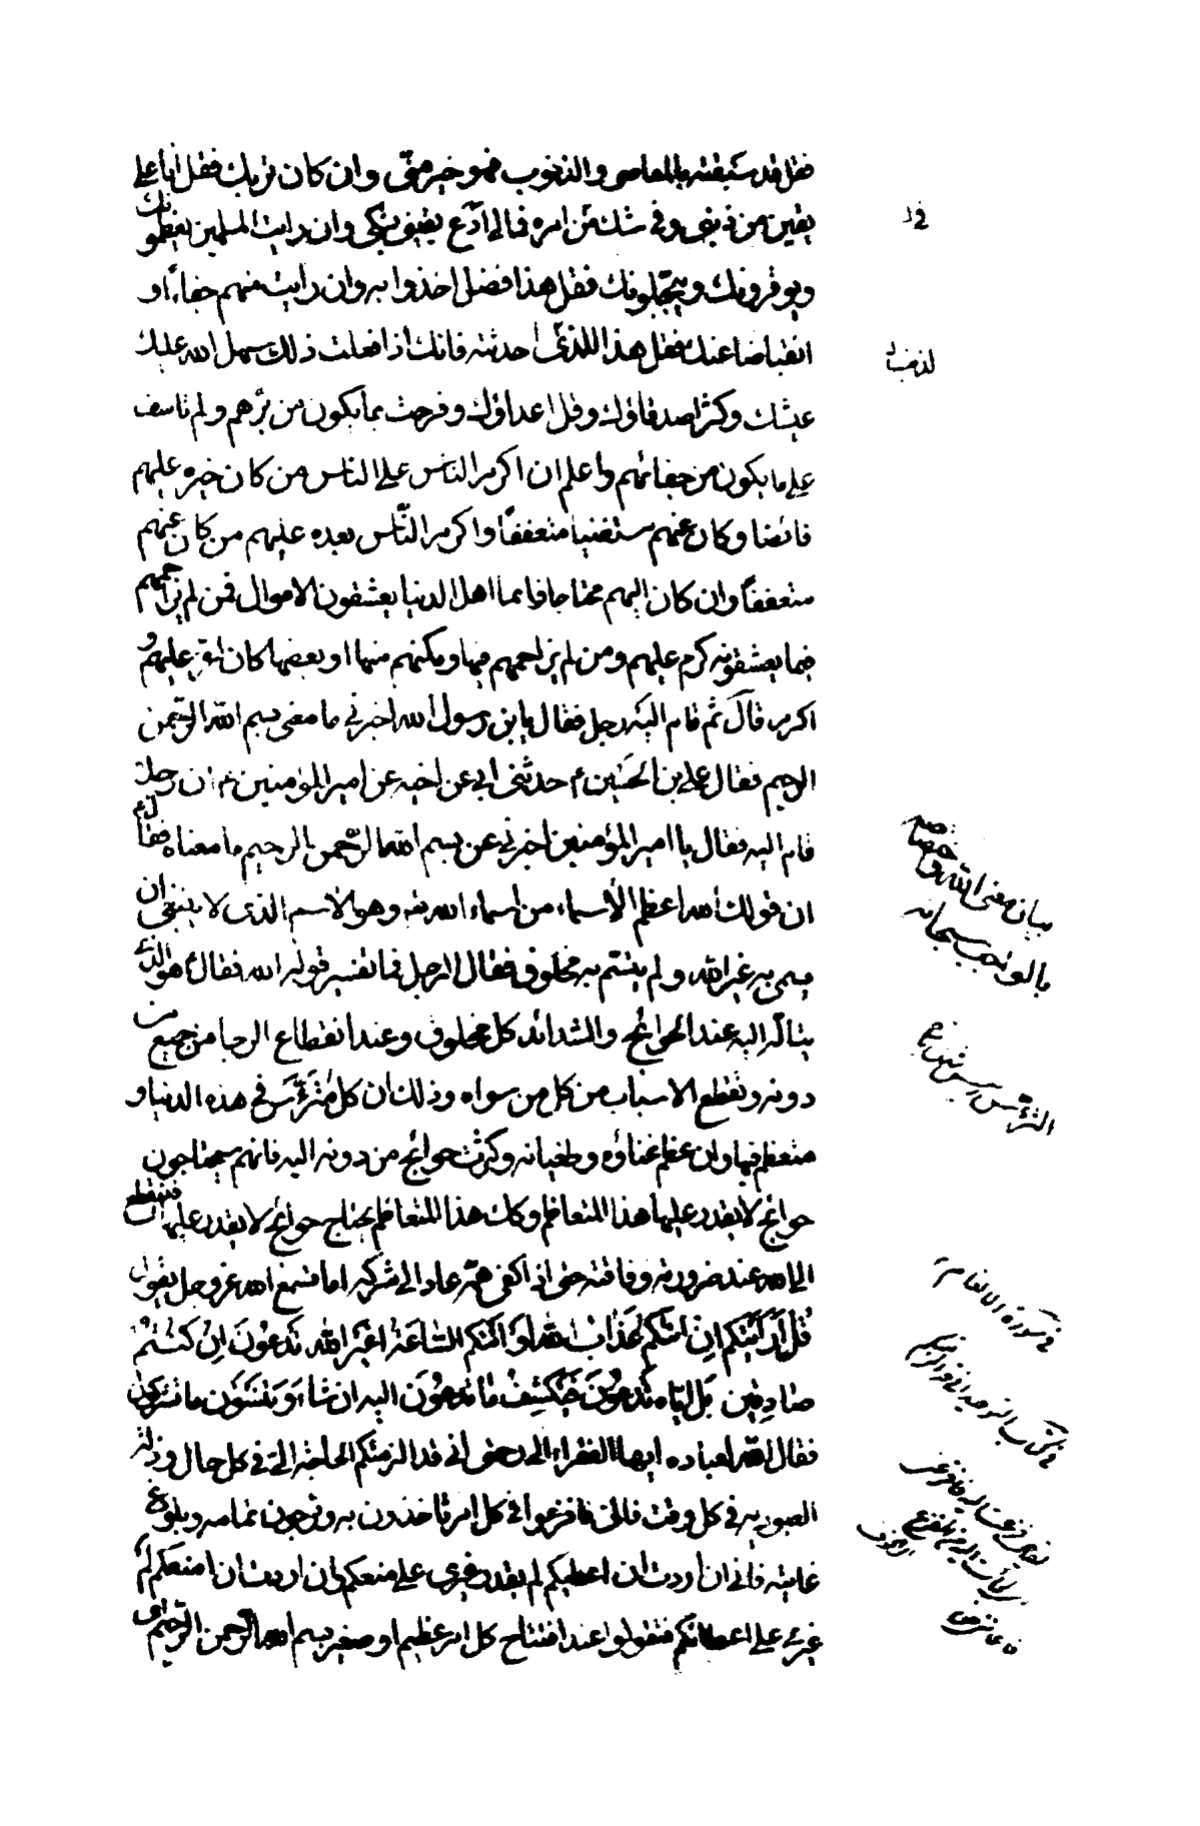 فقل قد سبقته بالمعاصى والذنوب فهو خير منّى وان كان تربك فقل انا على
يقين من ذنبى وفى شك من امره فمالى ادع يقينى بشكى وان رايت المسلمين يعظمونك
ويوقرونك ويبجّلونك فقل هذا فضل اخذوا به وان رايت منهم جفاءً او
انقباضا عنك فقل هذا اللذى احدثته فانك اذا فعلت ذلك سهل الله عليك
عيشك وكثر اصدقاؤك وقل اعداؤك وفرحت بما يكون من برّهم ولم تاسف
على ما يكون من جفائهم واعلم ان اكرم الناس على الناس من كان خيره عليهم
فائضا وكان عنهم مستغنيا متعففاً واكرم النّاس بعده عليهم من كان عنهم
متعففاً وان كان اليهم محتاجا فانما اهل الدنيا يعشقون الاموال فمن لم يزاحمهم
فيما يعشقونه كرم عليهم ومن لم يزاحمهم فيها ومكنهم منها او بعضها كان اعز عليهم و
اكرم قال ثم قام اليه رجل فقال يابن رسول الله اخبرنى ما معنى بسم الله الرّحمن
الرحيم فقال على بن الحسين ع حدثنى ابى عن اخيه عن امير المؤمنين ع ان رجلا
قام اليه فقال يا امير المؤمنين اخبرنى عن بسم الله الرّحمن الرحيم ما معناه فقال ع
ان قولك الله اعظم الأسماء من اسماء الله تع وهو الاسم الذى لا ينبغى ان
يسمى به غير الله ولم يتسم به مخلوق فقال الرجل فما تفسير قوله الله فقال ع هو الذى
يتالّه اليه عند الحوائج والشدائد كل مخلوق وعند انقطاع الرجا من جميع من
دونه وتقطع الاسباب من كل من سواه وذلك ان كل مترئّس فى هذه الدنيا و
متعظم فيها وان عظم غناؤه وطغيانه وكثرت حوائج من دونه اليه فانهم سيحتاجون
حوائج لا يقدر عليها هذا المتعاظم وكك هذا المتعاظم يحتاج حوائج لا يقدر عليها فينقطع
الى الله عند ضرورته وفاقته حتى اذا كفى همّه عاد الى شركه اما تسمع الله عز وجل يقول
قُل أَرَأَيْتَكم اِن اتٰكم عَذَابُ الله اَوْ اَتَتْكم السَّاعَةُ اَغَيْرَ الله تَدعُونَ اِنْ كُنتُمْ
صَادِقين بَل ايّاه تَدعُونَ فَيَكشِفُ مَا تَدعُونَ اليه ان شاءَ وَتَنسَوْن ما تشركون
فقال الله لعباده ايها الفقراء الى رحمتى انى قد الزمتكم الحاجة الىّ فى كل حال وذلة
العبودية فى كل وقت فالىّ فافزعوا فى كل امر تاخذون به وترجون تمامه وبلوغ
غايته فانى ان اردت ان اعطيكم لم يقدر غيرى على منعكم وان اردت ان امنعكم لم
غيرى على اعطائكم فقولوا عند افتتاح كل امر عظيم او صغير بسم الله الرّحمن الرّحيم اى
بيان معنى الله واختصاصه
بالواجب سبحانه
فى سورة الانعام